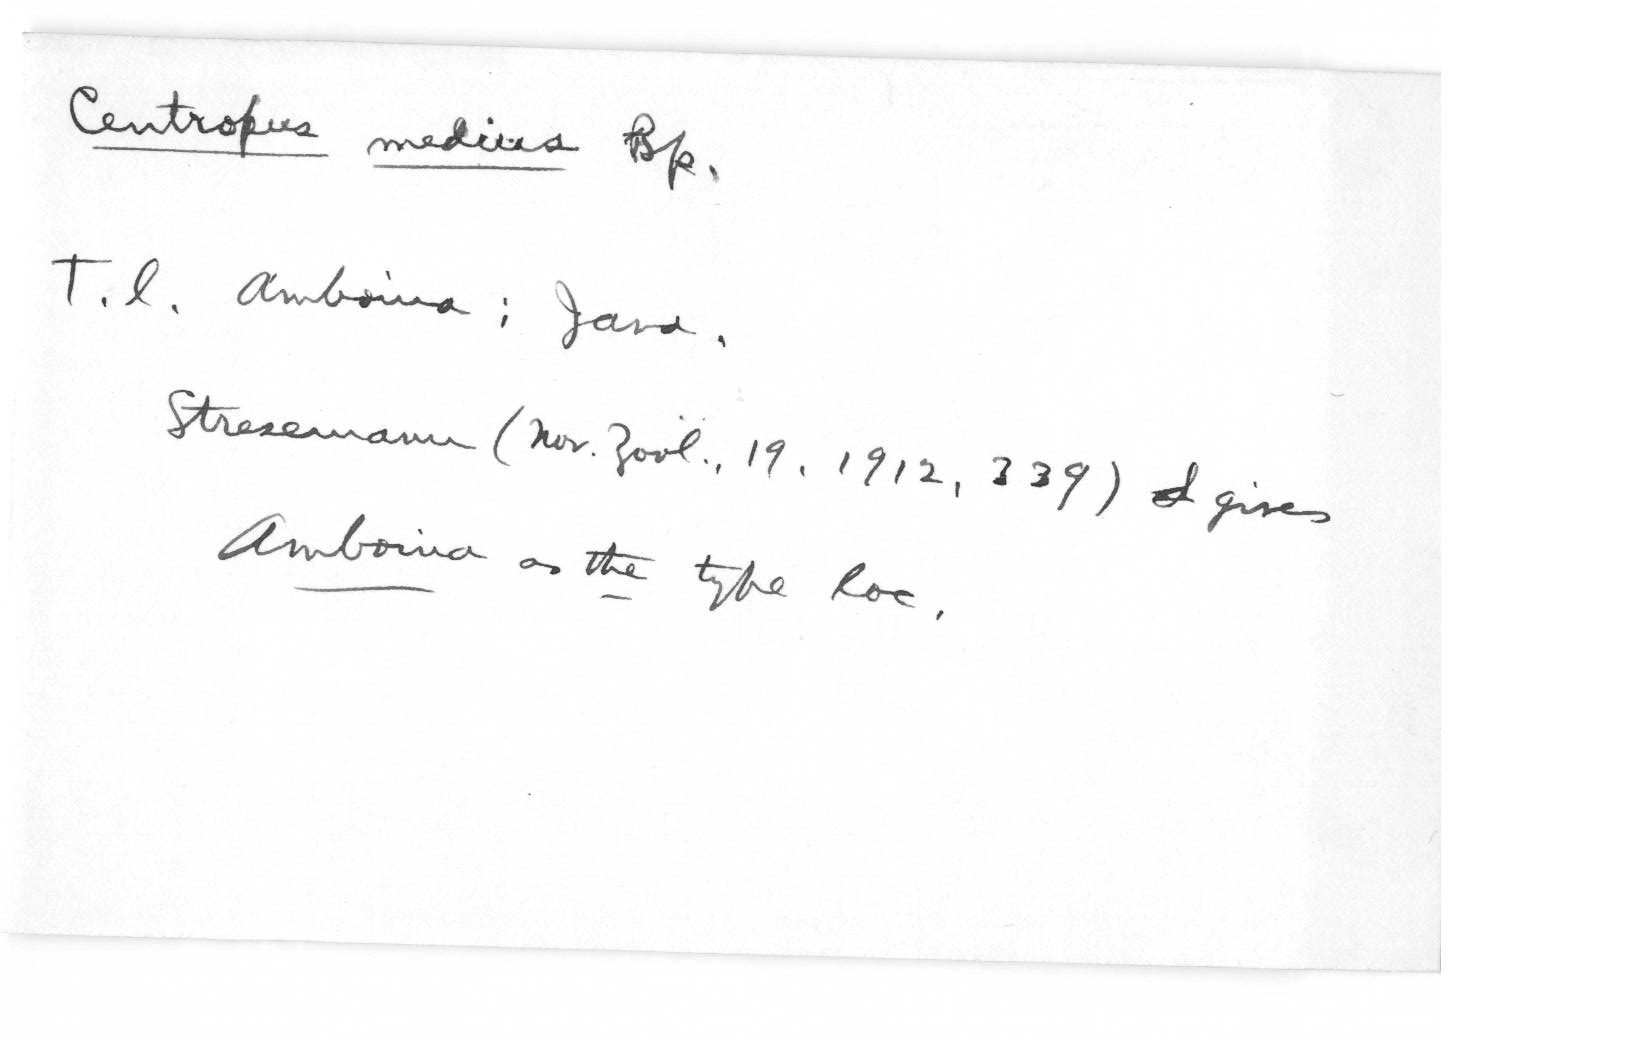 Centropus medius Bp.
T.l. Amboina; Java.
Stresemann (Nov. Zoöl., 19, 1912, 339) gives
Amboina as the type loc.